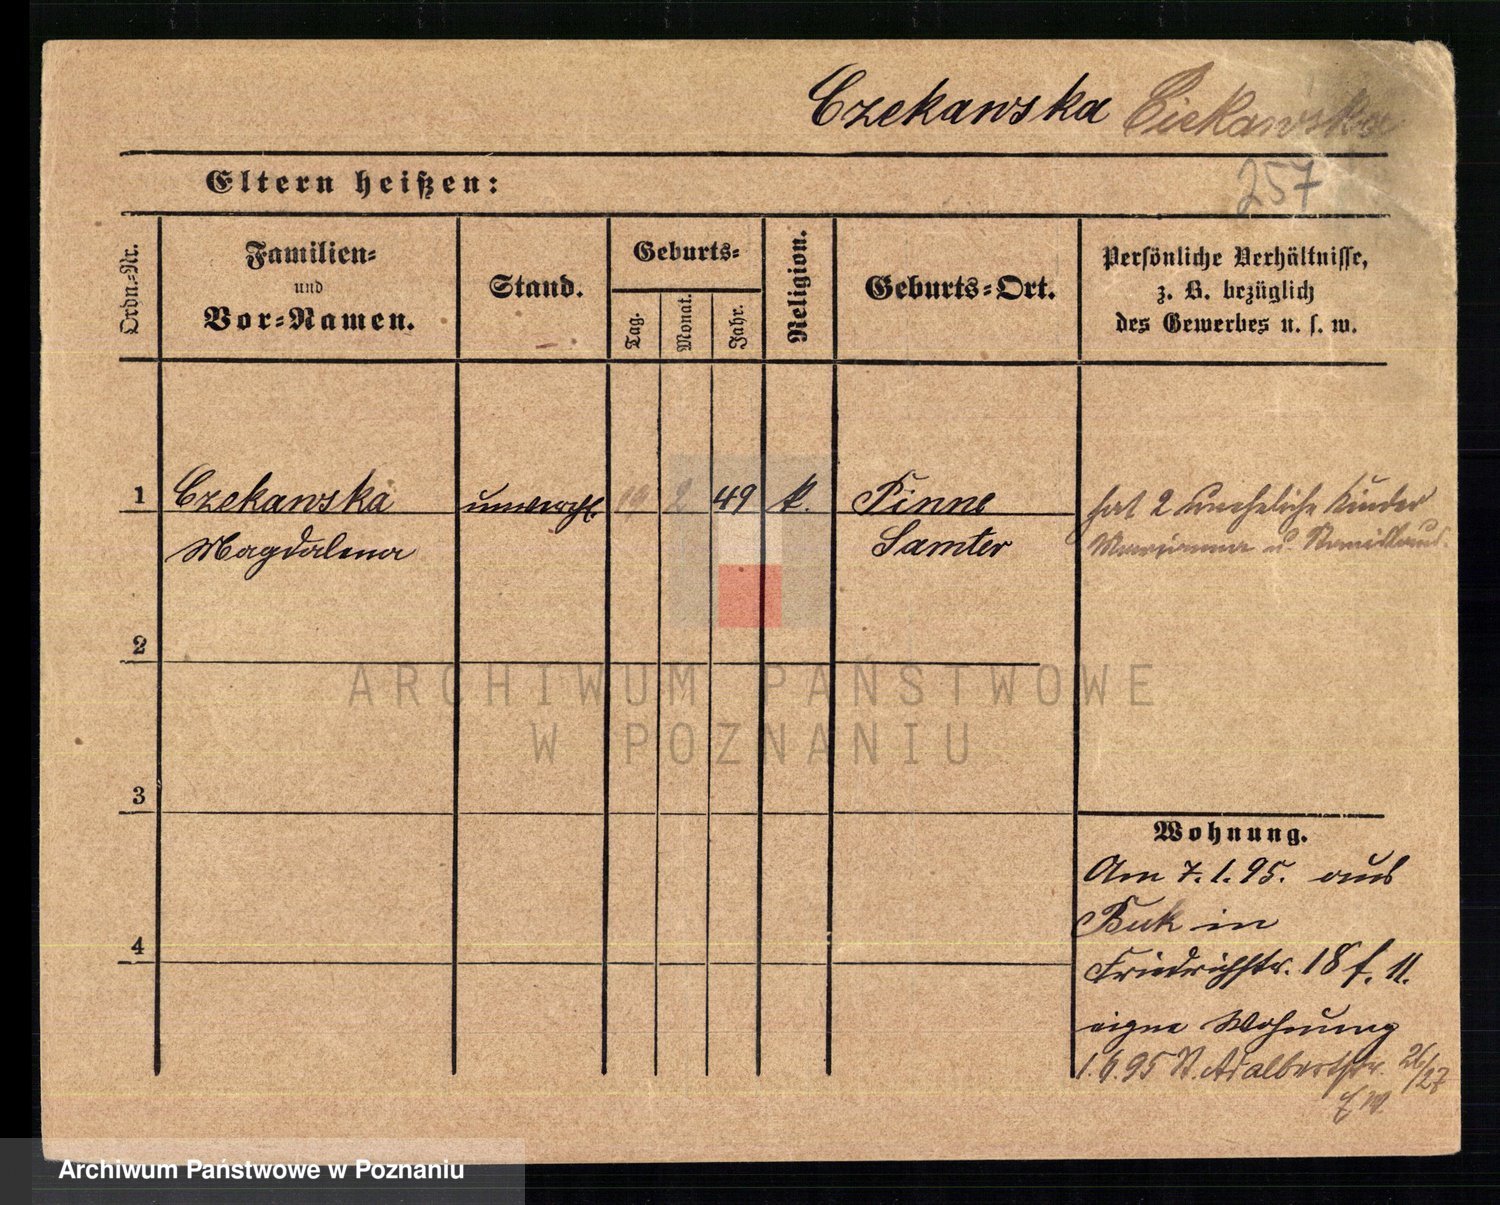 Czekawska Ciekawska
257
Eltern heißen:
Ordn.-Nr.
Familien-
und
Vor-Namen.
Stand.
Geburts-
Tag.
Monat.
Jahr.
Religion.
Geburts-Ort.
Persönliche Verhältnisse,
z. B. bezüglich
des Gewerbes u. s. w.
1 Czekawska unverehl. 19 2 49 k. Pinne hat 2 uneheliche Kinder
Magdalena Samter Marianna u.
2
3
4
Wohnung.
Am 7.1.95. aus
Buk in
Friedrichstr. 18 f. II.
eigne Wohnung
1.6.95 St. Adalbertstr. 26/27
ARCHIWUM PAŃSTWOWE
W POZNANIU
Archiwum Państwowe w Poznaniu